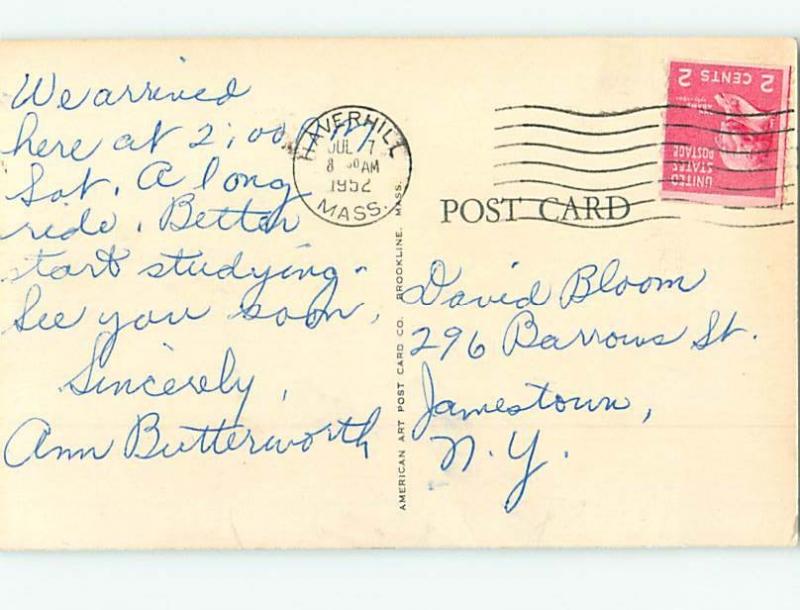 We arrived
here at 2:00 PM
Sat. A long
ride. Better
start studying.
See you soon,
Sincerely,
Ann Butterworth
HAVERHILL
JUL 7
8 30 AM
1952
MASS.
AMERICAN ART POST CARD CO. BROOKLINE, MASS.
2 CENTS 2
UNITED
STATES
POSTAGE
POST CARD
David Bloom
296 Barrows St.
Jamestown,
N.Y.